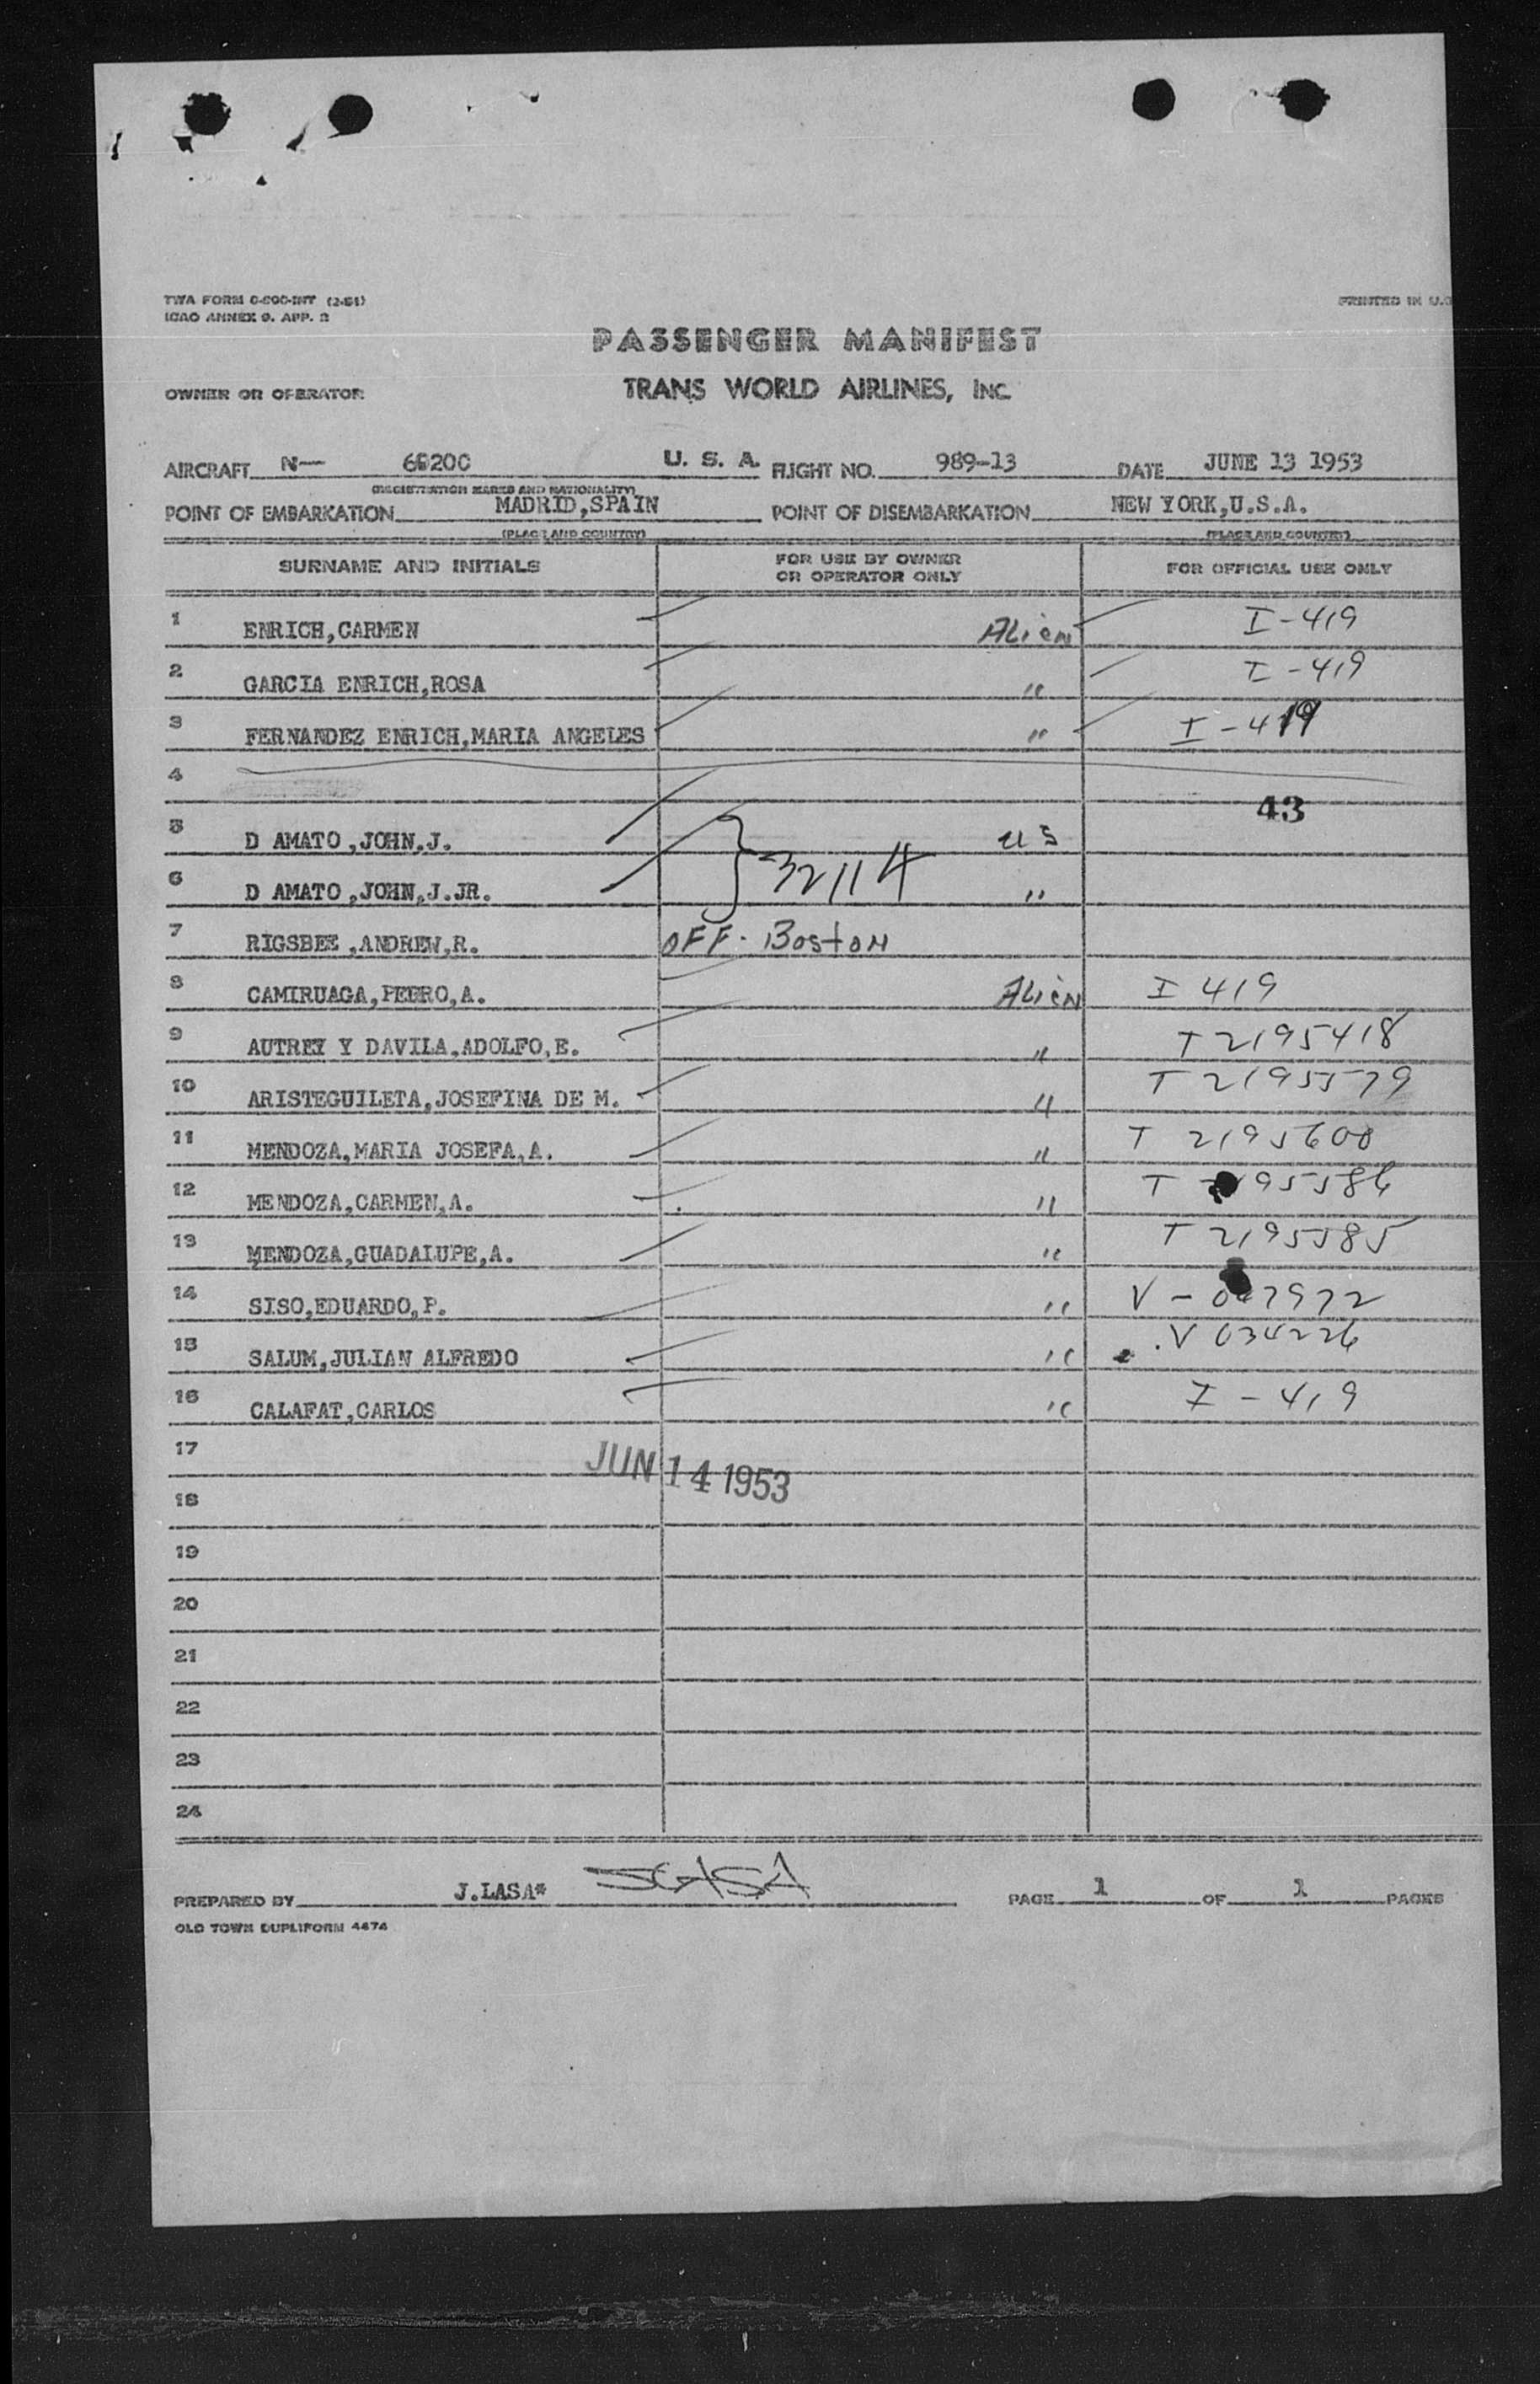 TWA FORM 0-800-INT (2-51)
ICAO ANNEX 9. APP. 2
PRINTED IN U.S
PASSENGER MANIFEST
OWNER OR OPERATOR TRANS WORLD AIRLINES, INC
AIRCRAFT N— U. S. A. FLIGHT NO. 989-13 DATE JUNE 13 1953
(REGISTRATION MARKS AND NATIONALITY)
POINT OF EMBARKATION MADRID,SPAIN POINT OF DISEMBARKATION NEW YORK,U.S.A.
(PLACE AND COUNTRY) (PLACE AND COUNTRY)
SURNAME AND INITIALS FOR USE BY OWNER OR OPERATOR ONLY FOR OFFICIAL USE ONLY
1 ENRICH,CARMEN Alien I-419
2 GARCIA ENRICH,ROSA " I-419
3 FERNANDEZ ENRICH,MARIA ANGELES " I-419
4
43
5 D AMATO ,JOHN,J. US
6 D AMATO ,JOHN,J.JR. } 32114 "
7 RIGSBEE ,ANDREW,R. OFF. Boston
8 CAMIRUAGA,PEDRO,A. Alien I 419
9 AUTREY Y DAVILA,ADOLFO,E. " T 2195418
10 ARISTEGUILETA,JOSEFINA DE M. " T 2195579
11 MENDOZA,MARIA JOSEFA,A. " T 2195600
12 MENDOZA,CARMEN,A. " T
13 MENDOZA,GUADALUPE,A. " T 2195585
14 SISO,EDUARDO,P. " V -
15 SALUM,JULIAN ALFREDO " V 034226
16 CALAFAT,CARLOS " I-419
17
JUN 14 1953
18
19
20
21
22
23
24
PREPARED BY J.LASA* PAGE 1 OF 1 PAGES
OLD TOWN DUPLIFORM 4474